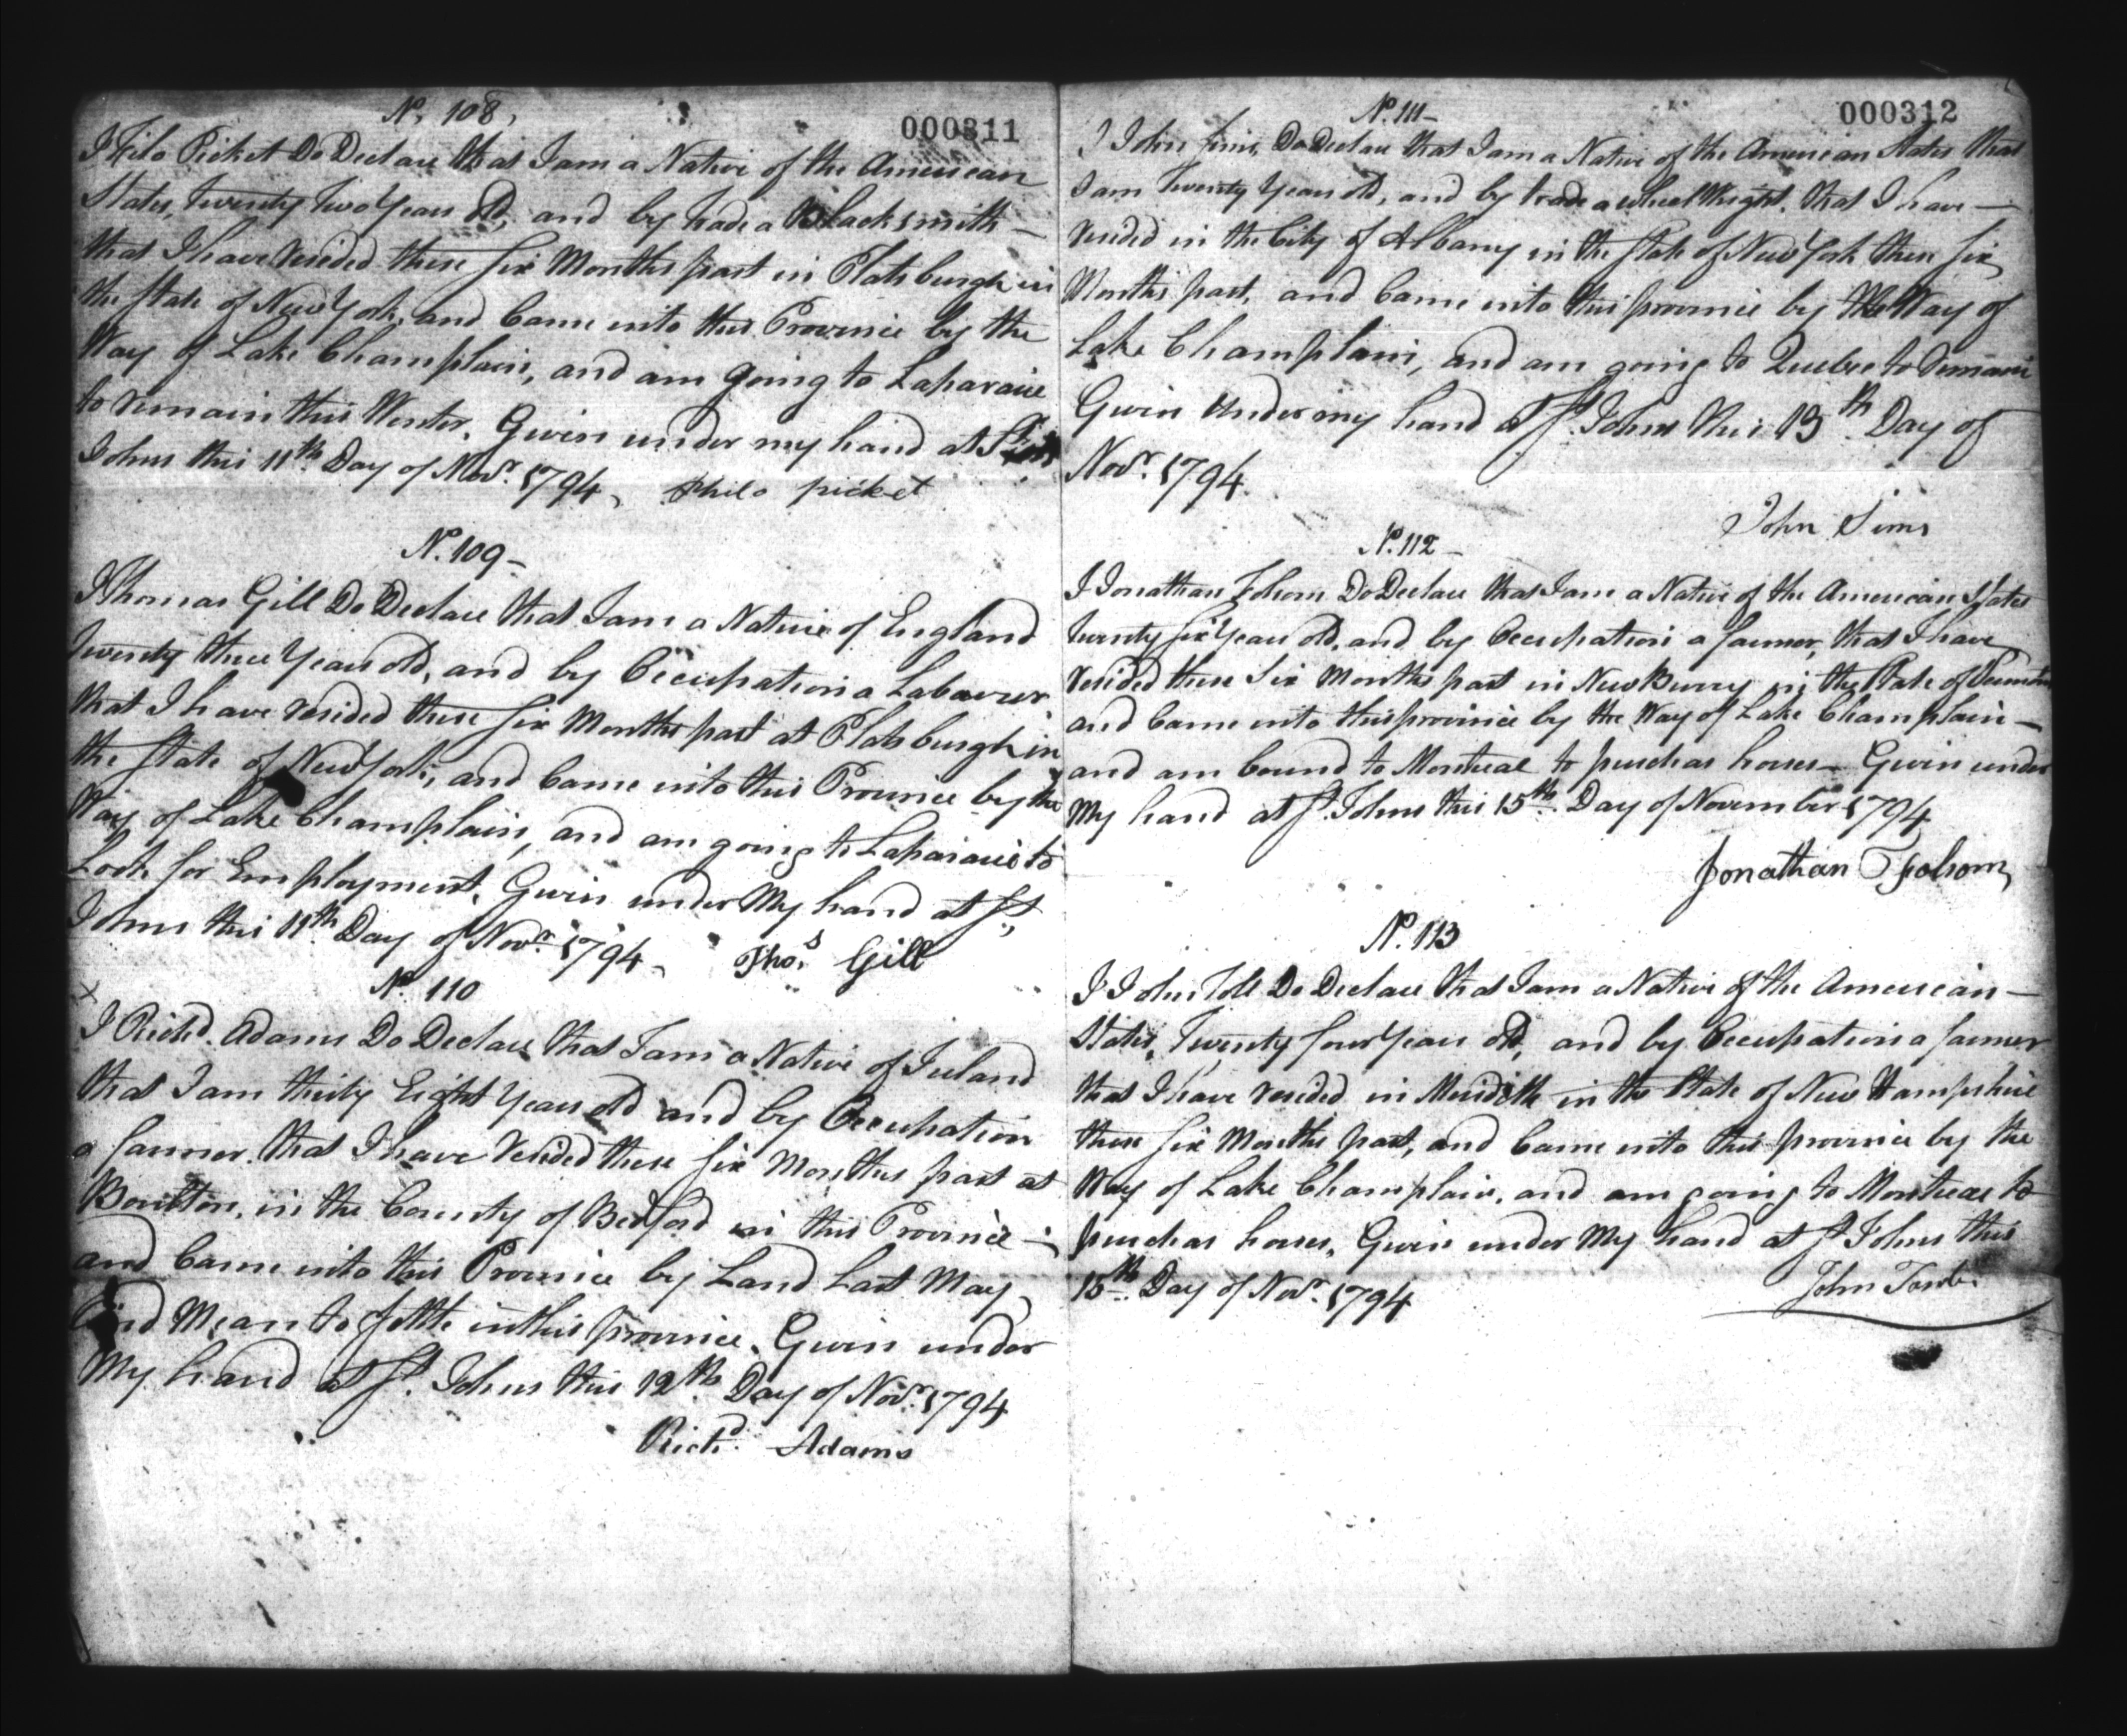 No. 108,
000311
I Filo Picket Do Declare that I am a Native of the American
States, Twenty Two Years old, and by trade a Blacksmith —
that I have resided these Six Months past in Platsburgh in
the State of New York, and Came into this Province by the
Way of Lake Champlain, and am going to Laparaire
to remain this Winter. Given under my hand at St
Johns this 11th Day of Novr. 1794, Philo picket
No. 109 —
I Thomas Gill Do Declare that I am a Native of England
Twenty three Years old, and by Occupation a Labourer
that I have resided these Six Months past at Platsburgh in
the State of New York, and Came into this Province by the
Way of Lake Champlain, and am going to Laparaire to
Look for Employment, Given under My hand at St,
Johns this 11th Day of Novr. 1794 — Thos. Gill
No. 110
x
I Richd. Adams Do Declare that I am a Native of Ireland
that I am thirty Eight Years old and by Occupation
a farmer. that I have Resided these Six Months past at
Boulton, in the County of Bedford in this Province —
and Came into this Province by Land Last May,
and Mean to Settle in this province. Given under
My hand at St. Johns this 12th Day of Novr. 1794
Richd. Adams
No. 111 —
000312
I John Sims, Do Declare that I am a Native of the American States that
I am Twenty Years old, and by trade a wheel Wright. that I have —
resided in the City of Albany in the State of New York these Six
Months past, and Came into this province by the Way of
Lake Champlain, and am going to Quebec to remain
Given under my hand at St. Johns this 13th. Day of
Novr. 1794.
John Sims
No. 112 —
I Jonathan Folsom Do Declare that I am a Native of the American States
twenty Six Years old, and by Occupation a farmer, that I have
resided these Six Months past in New Burry in the State of Vermont
and Came into this province by the Way of Lake Champlain —
and am bound to Montreal to purchas horses — Given under
My hand at St. Johns this 15th. Day of November 1794
Jonathan Folsom
No. 113
I John Do Declare that I am a Native of the American —
States, Twenty four Years old, and by Occupation a farmer
that I have resided in Meridith in the State of New Hampshire
these Six Months past, and Came into this province by the
Way of Lake Champlain, and am going to Montreal to
purchas horses, Given under My hand at St Johns this
15th. Day of Novr. 1794
John